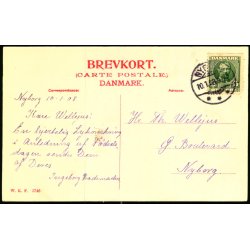 BREVKORT.
(CARTE POSTALE)
DANMARK.
Correspondance:
Adresse:
DANMARK
Nyborg 10-1-08
Kære Wellejus!
En hjertelig Lykønskning
i Anledning af Fødsels
dagen sendes Dem
af Deres
Ingeborg Rademacher
Hr. Th. Wellejus
Boulevard
Nyborg.
W. & F. 1746